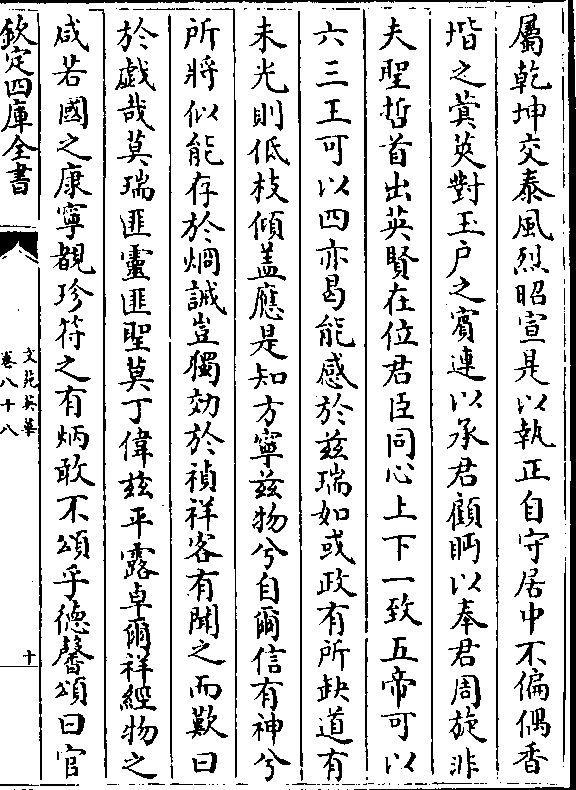 屬乾坤交泰風烈昭宣是以執正自守居中不偏偶香
堦之蓂莢對玉戶之賓連以承君顧眄以奉君周旋非
夫聖哲首出英賢在位君臣同心上下一致五帝可以
六三王可以四亦曷能感於兹瑞如或政有所缺道有
未光則低枝傾盖應是知方寧兹物兮自爾信有神兮
所將似能存於烱誡豈獨効於禎祥客有聞之而歎曰
於戯哉莫瑞匪靈匪聖莫丁偉兹平露卓爾祥經物之
咸若國之康寧覩珍符之有炳敢不頌乎德馨頌曰官
欽定四庫全書
文苑英華
卷八十八
十